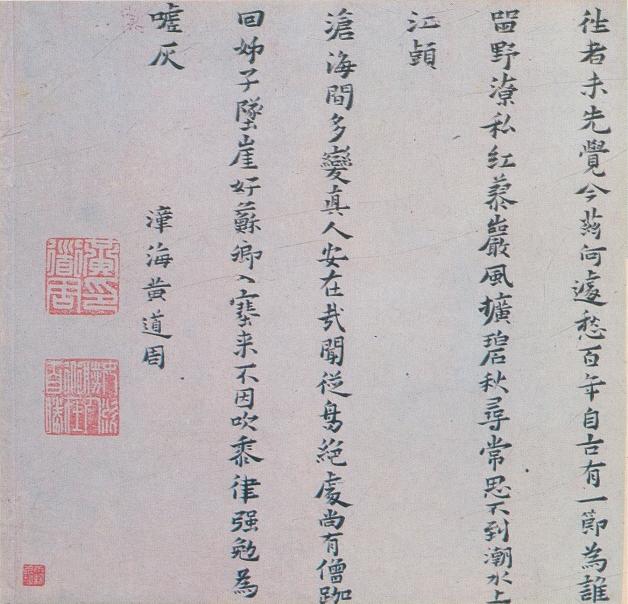 徃者未先覺今茲何處愁百年自古有一節為誰
留野潦私紅蓼巖風擴碧秋尋常思不到潮水上
江頭
滄海間多變真人安在哉聞從鳥絕處尚有僧跏
回姊子墜崖好蘇卿入塞来不因吹黍律强勉為
噓灰
漳海黄道周